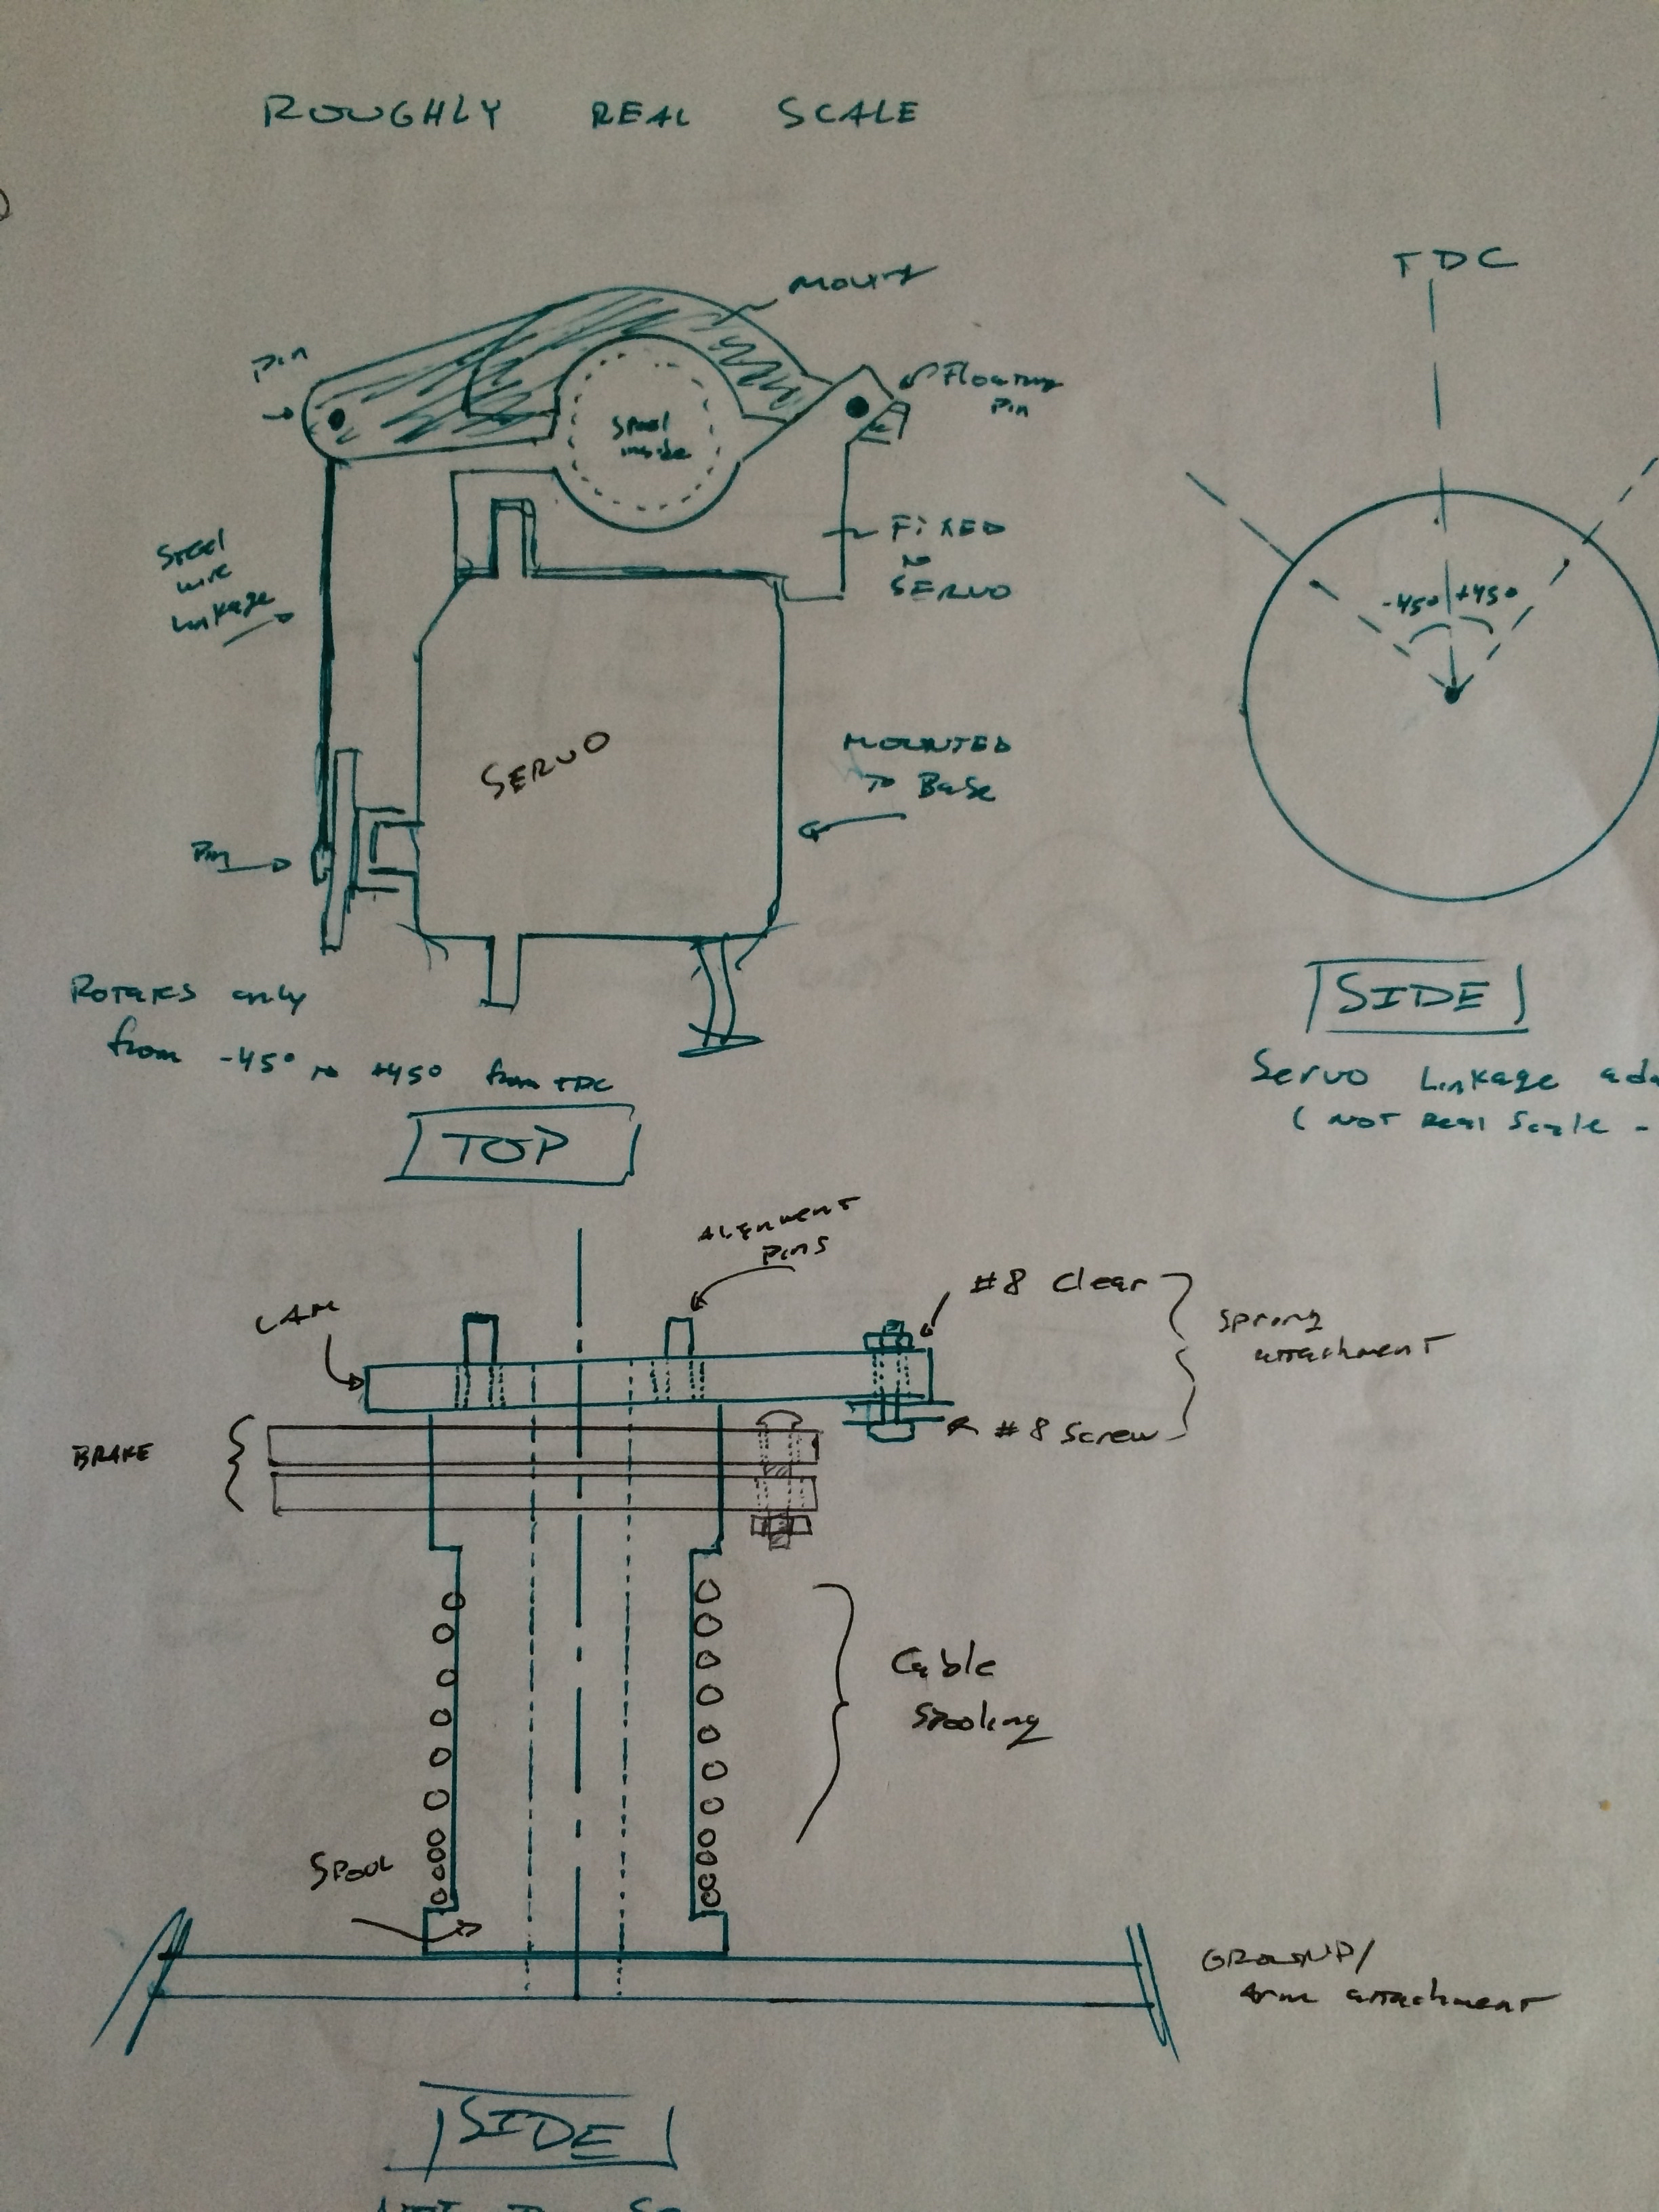 ROUGHLY REAL SCALE
mount
Pin
Floating
Pin
Spool
inside
Steel
wire
linkage
FIXED
to
SERVO
SERVO
MOUNTED
TO Base
Pin
Rotates only
from -45° to +45° from TDC
TOP
TDC
-45° +45°
SIDE
Servo Linkage
(NOT Real Scale -
ALIGNMENT
PINS
CAM
#8 Clear
Spring
attachment
#8 Screw
BRAKE
Cable
Spooling
SPOOL
GROUND/
Arm attachment
SIDE